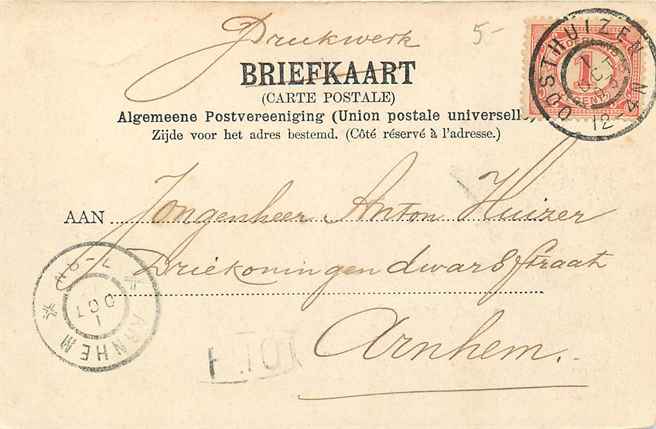 Drukwerk 5-
BRIEFKAART
(CARTE POSTALE)
Algemeene Postvereeniging (Union postale universelle)
Zijde voor het adres bestemd. (Côté réservé à l'adresse.)
AAN Jongenheer Anton Huizer
Driekoningendwarsstraat
Arnhem.
OOSTHUIZEN
1
OCT
12
ARNHEM
1
OCT